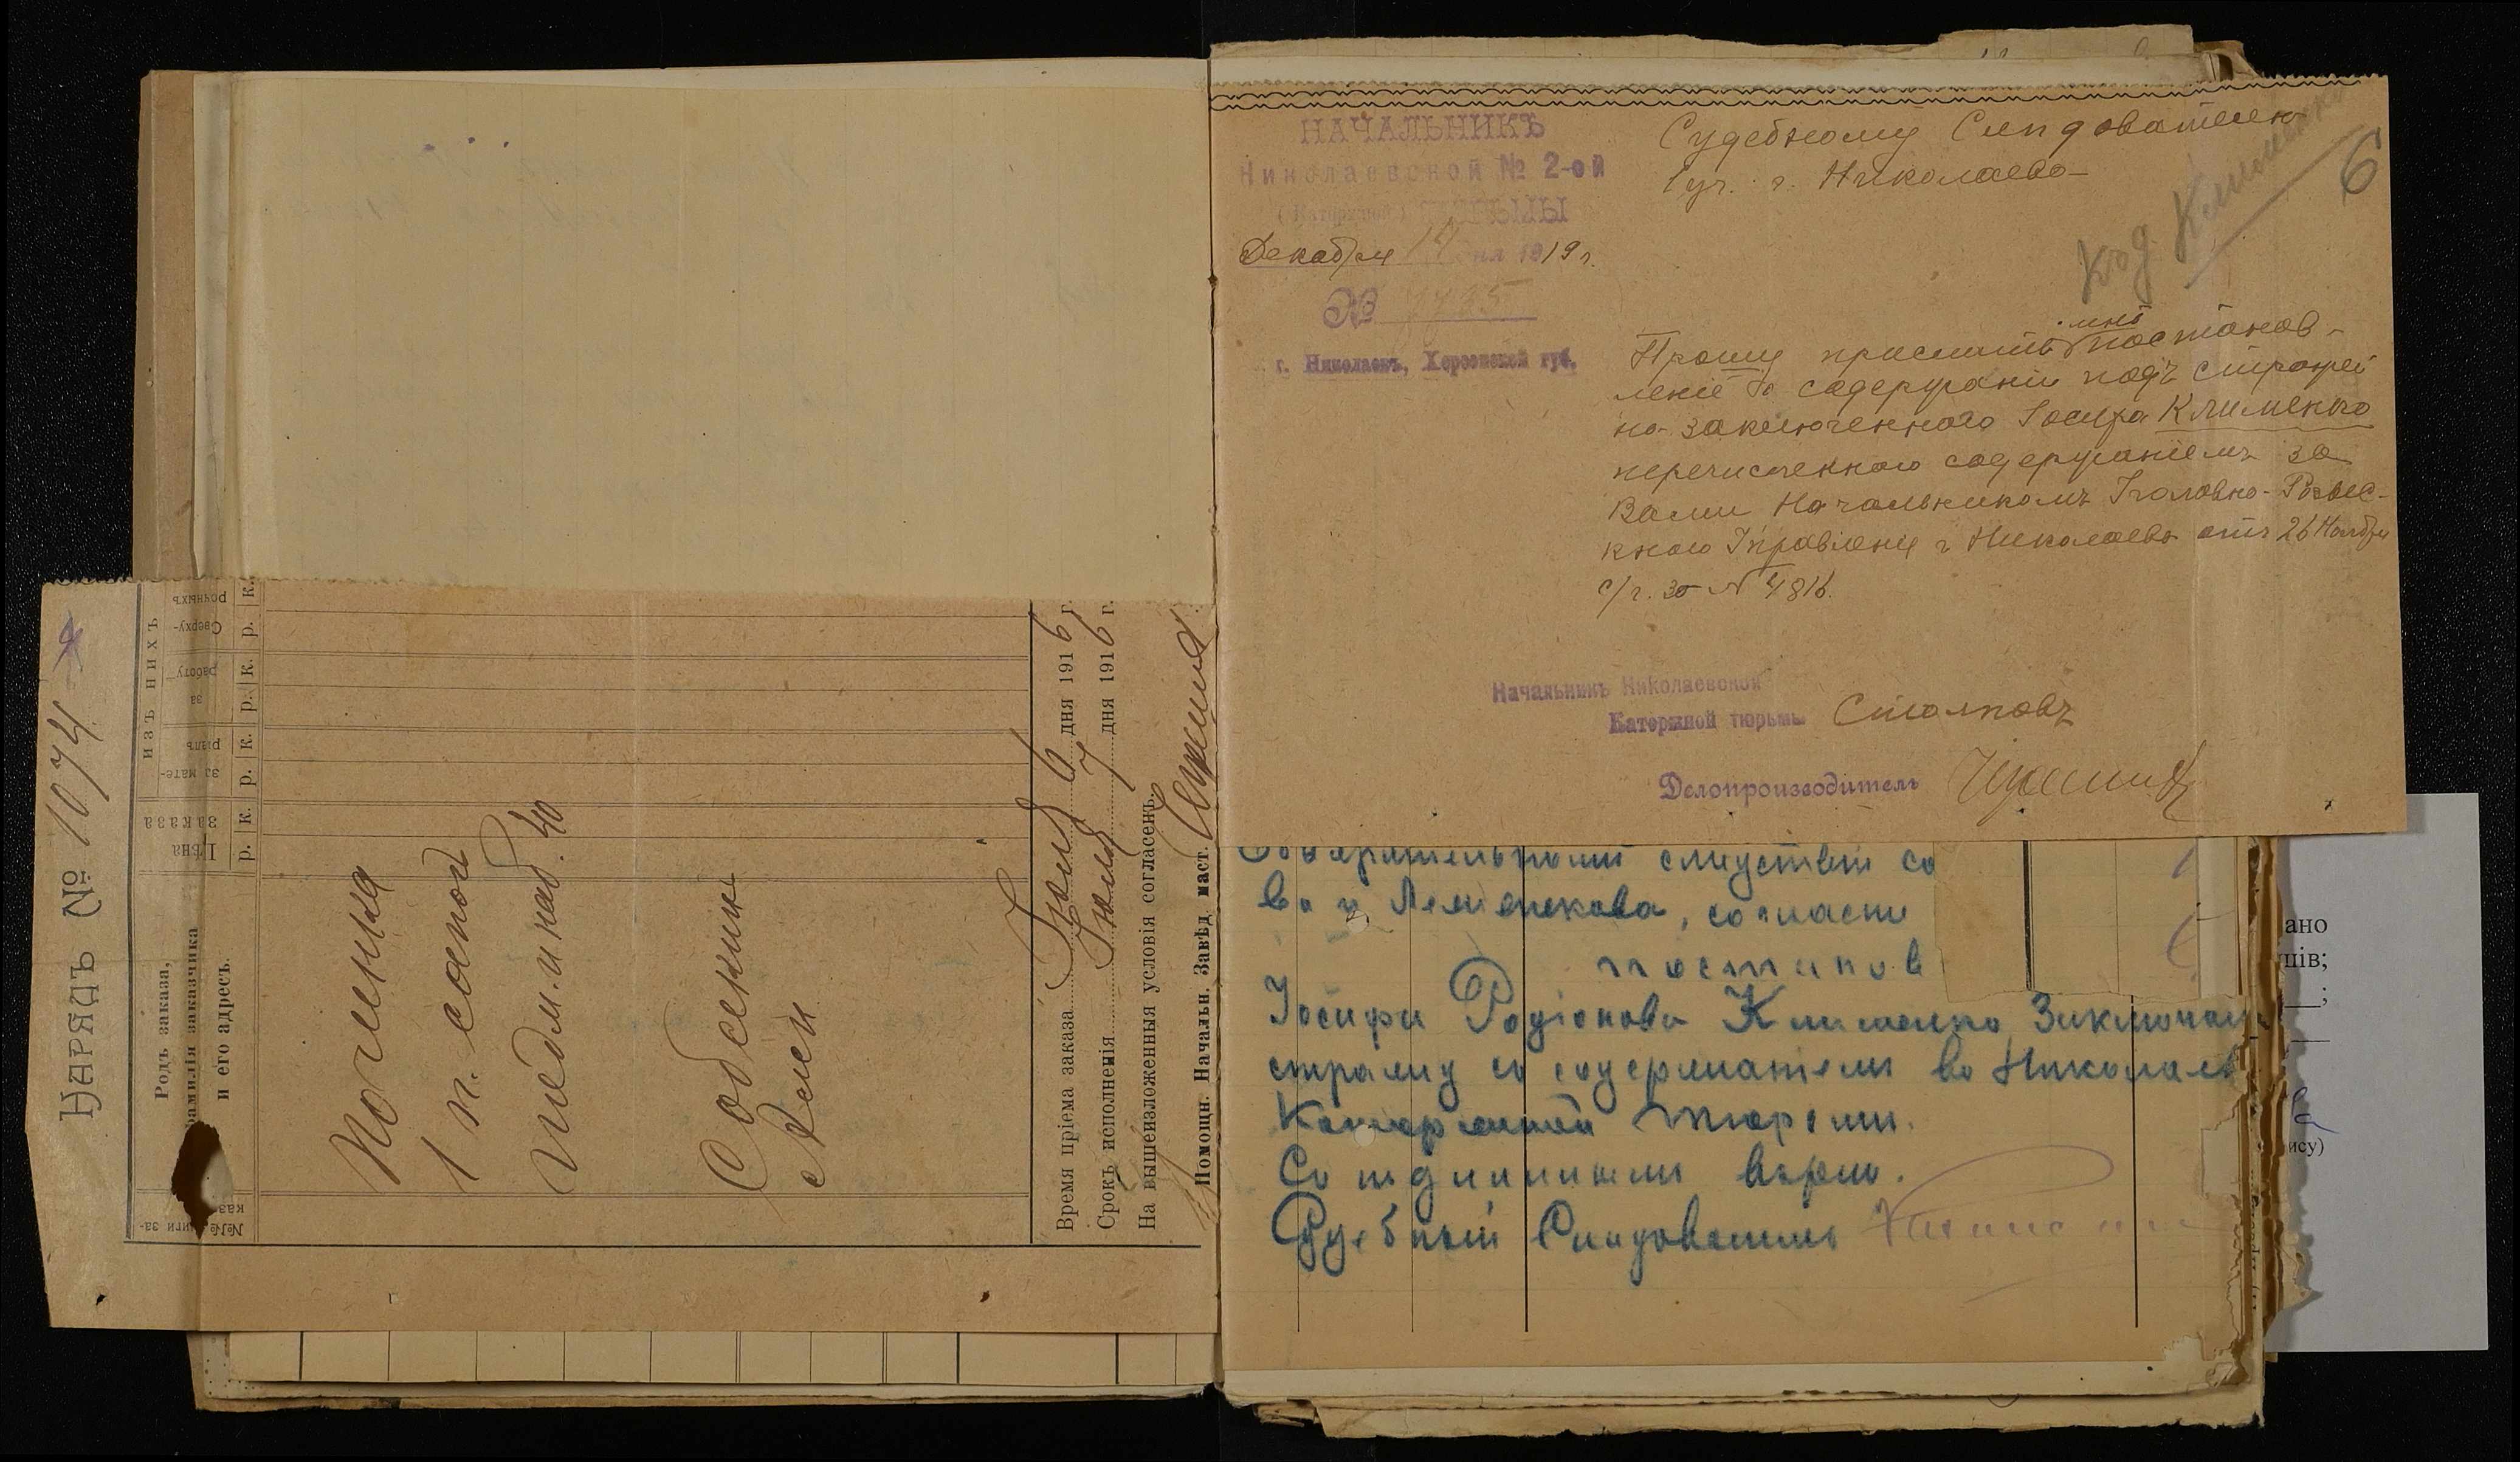 НАРЯДЪ № 1074
№№ книги за-
каз
Родъ заказа,
фамилія заказчика
и его адресъ.
Цѣна
заказа
р. к.
ИЗЪ НИХЪ
за мате-
ріалъ
р. к.
за
работу
р. к.
Сверху-
рочныхъ
р. к.
Починка
1 п. сапог
подм. и наб. 40
Время пріема заказа Іюня 6 дня 1916 г.
Срокъ исполненія Іюня 7 дня 1916 г.
На вышеизложенныя условія согласенъ
Помощн. Начальн. Завѣд. маст.
НАЧАЛЬНИКЪ
Николаевской № 2-ой
(Каторжной) ТЮРЬМЫ
Декабря 17 дня 1919 г.
№
г. Николаевъ, Херсонской губ.
Судебному Слѣдователю
1 уч. г. Николаева
6
Прошу прислать мнѣ постанов-
леніе о содержаніи подъ стражей
на заключеннаго Іосифа Клименко
перечисленнаго содержаніемъ за
Вами Начальникомъ Уголовно-Розыс-
кного Управленія г. Николаева отъ 26 Ноября
с/г. за № 4816.
Начальникъ Николаевской
Каторжной тюрьмы Столповъ
Делопроизводитель
слѣдствія
согласно
постанов
Іосифа Родіонова Клименко, Заключенъ
стражу съ содержаніемъ въ Николаев
Каторжной тюрьмѣ.
Съ подлиннымъ вѣрно.
Судебный Слѣдователь
ано
шів;
ису)